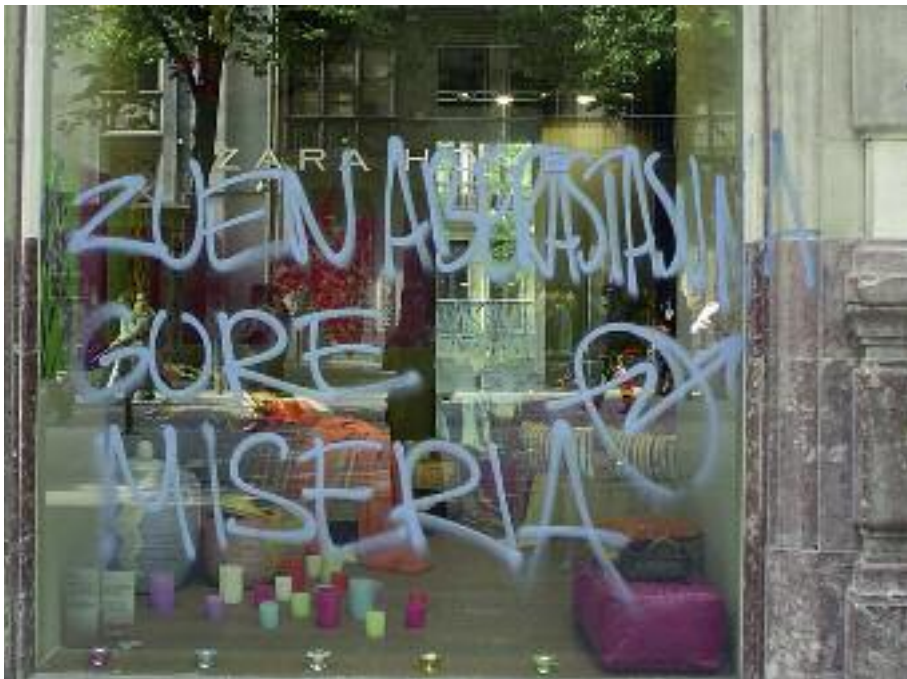 ZARA HOME
ZUEN ABERASTASUNA
GURE
MISERIA